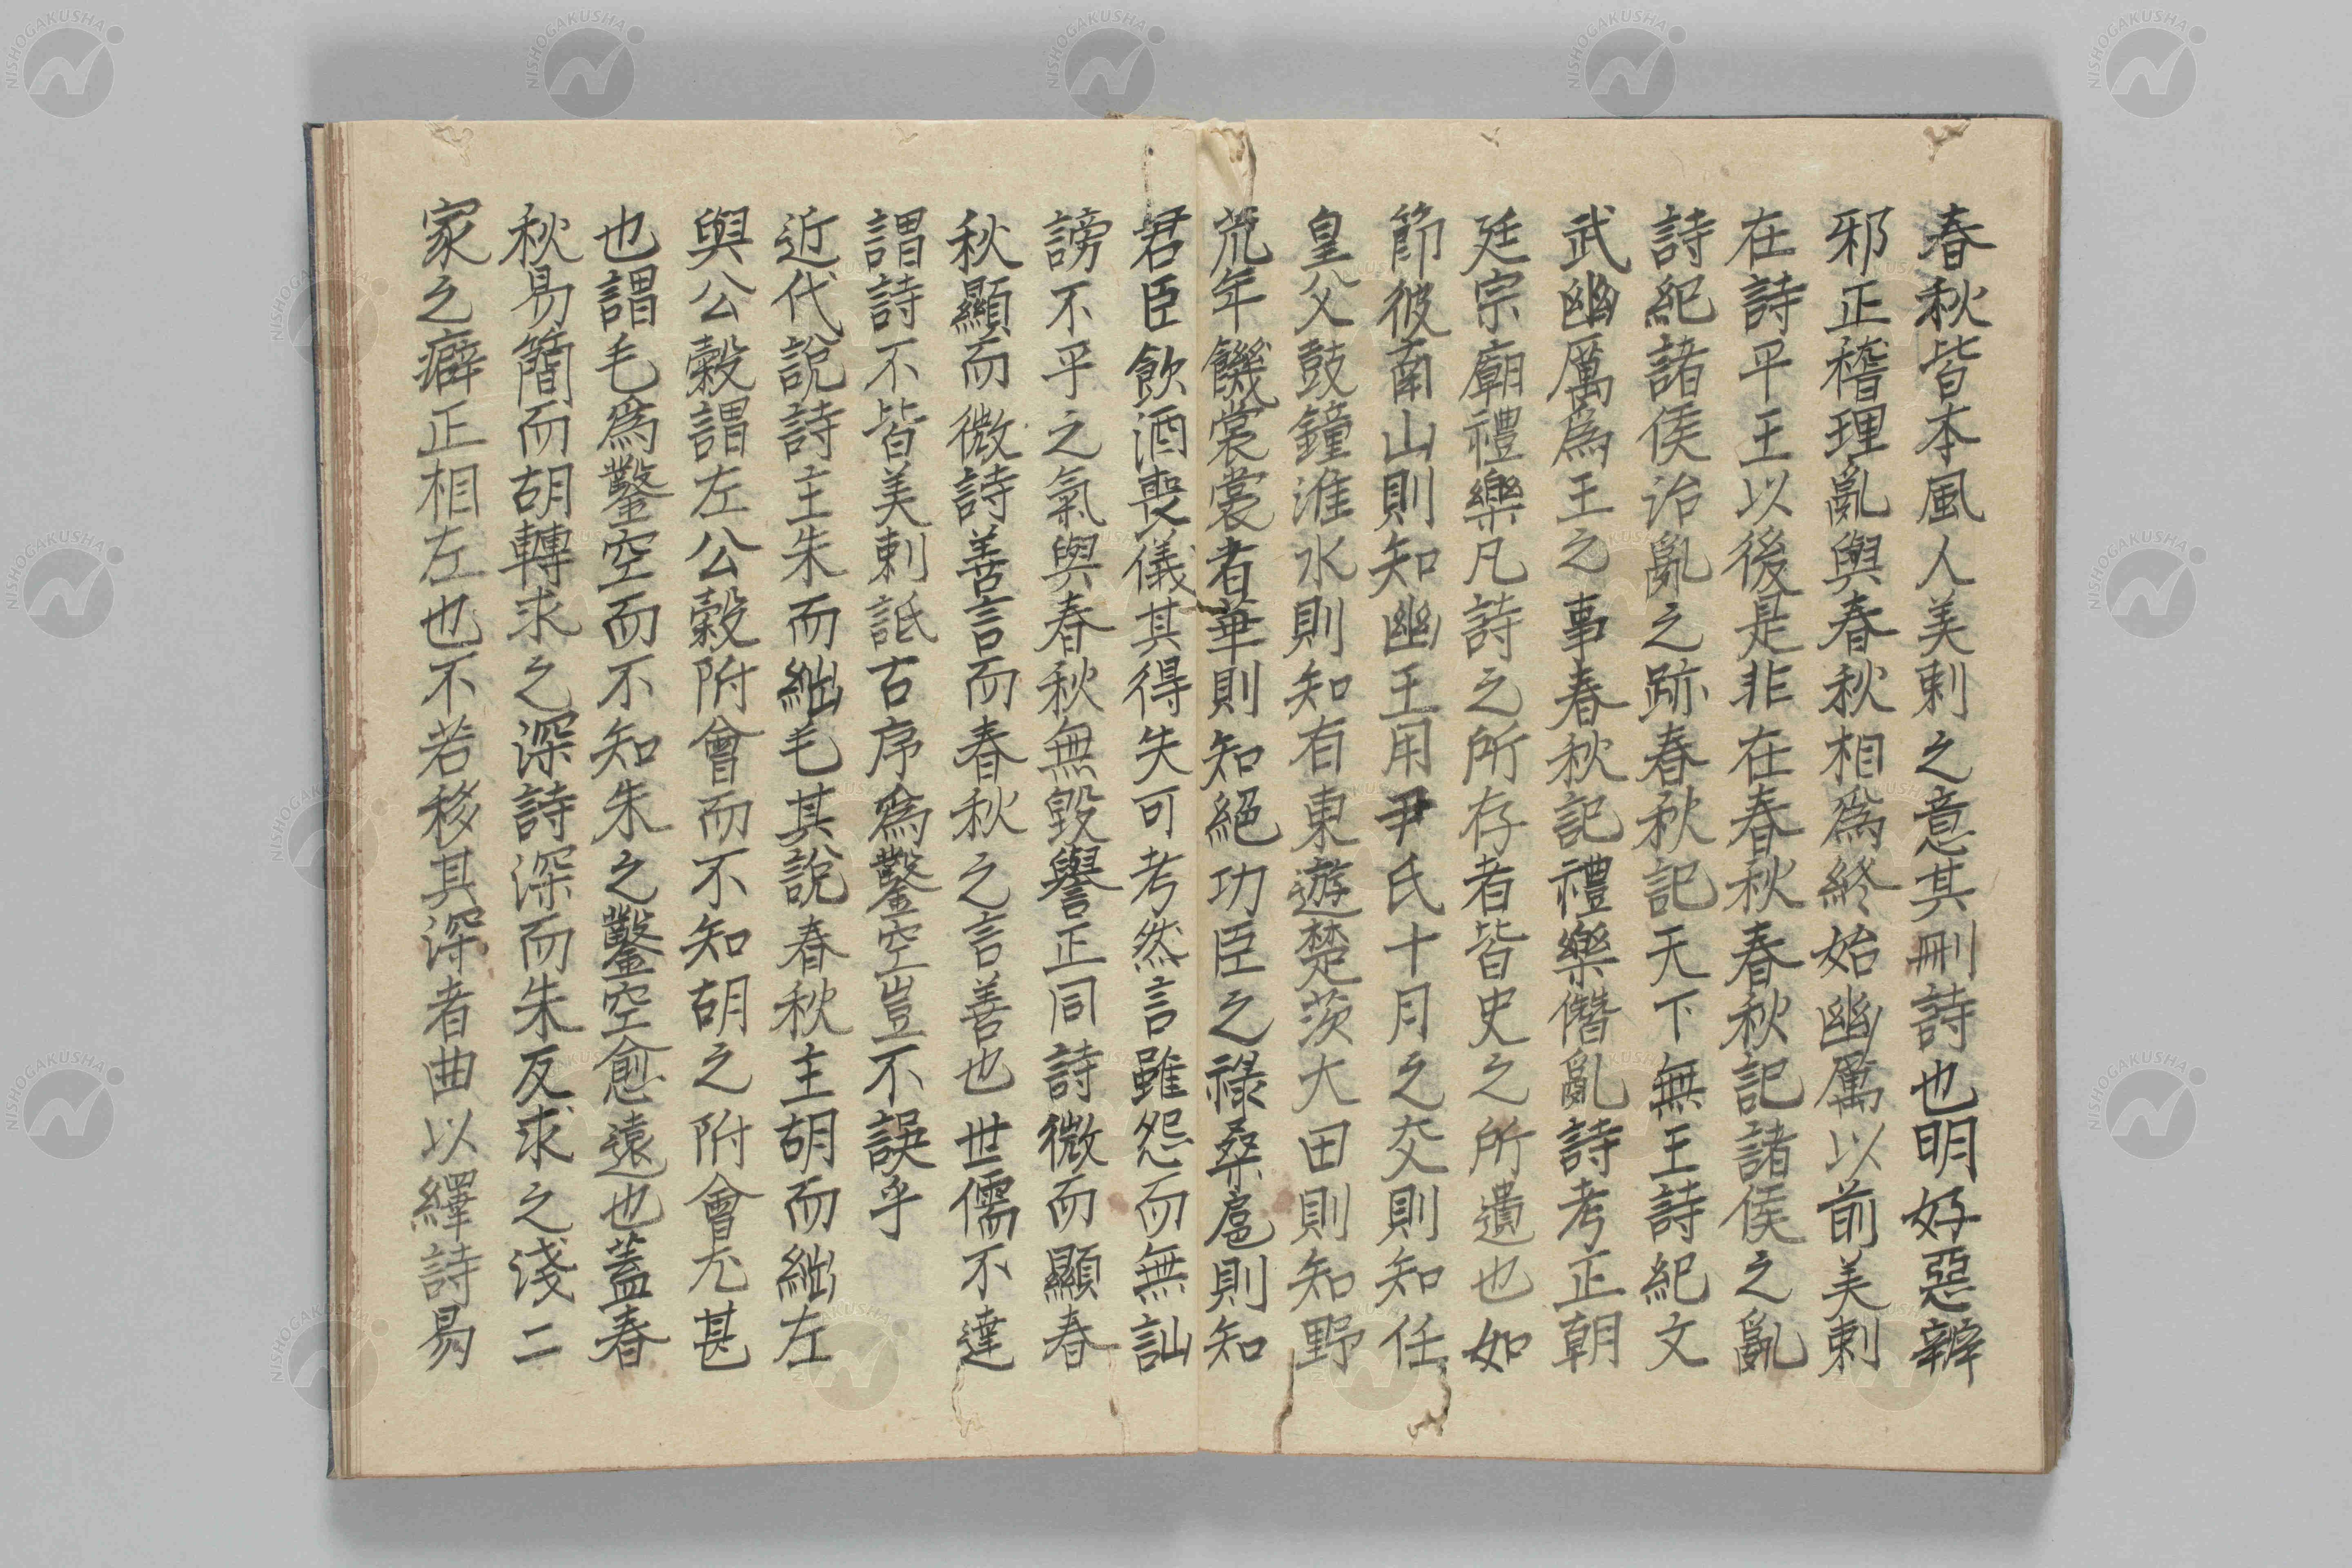 春秋皆本風人美刺之意其刪詩也明好惡辨
邪正稽理亂與春秋相為終始幽厲以前美刺
在詩平王以後是非在春秋春秋記諸侯之亂
詩紀諸侯治亂之跡春秋記天下無王詩紀文
武幽厲為王之事春秋記禮樂僭亂詩考正朝
廷宗廟禮樂凡詩之所存者皆史之所遺也如
節彼南山則知幽王用尹氏十月之交則知任
皇父鼓鐘淮水則知有東遊楚茨大田則知野
荒年饑裳裳者華則知絕功臣之祿桑扈則知
君臣飲酒喪儀其得失可考然言雖怨而無訕
謗不乎之氣與春秋無毀譽正同詩微而顯春
秋顯而微詩善言而春秋之言善也世儒不達
謂詩不皆美刺詆古序為鑿空豈不誤乎
近代說詩主朱而絀毛其說春秋主胡而絀左
與公穀謂左公穀附會而不知胡之附會尤甚
也謂毛為鑿空而不知朱之鑿空愈遠也蓋春
秋易簡而胡轉求之深詩深而朱反求之淺二
家之癖正相左也不若移其深者曲以繹詩易
NISHOGAKUSHA